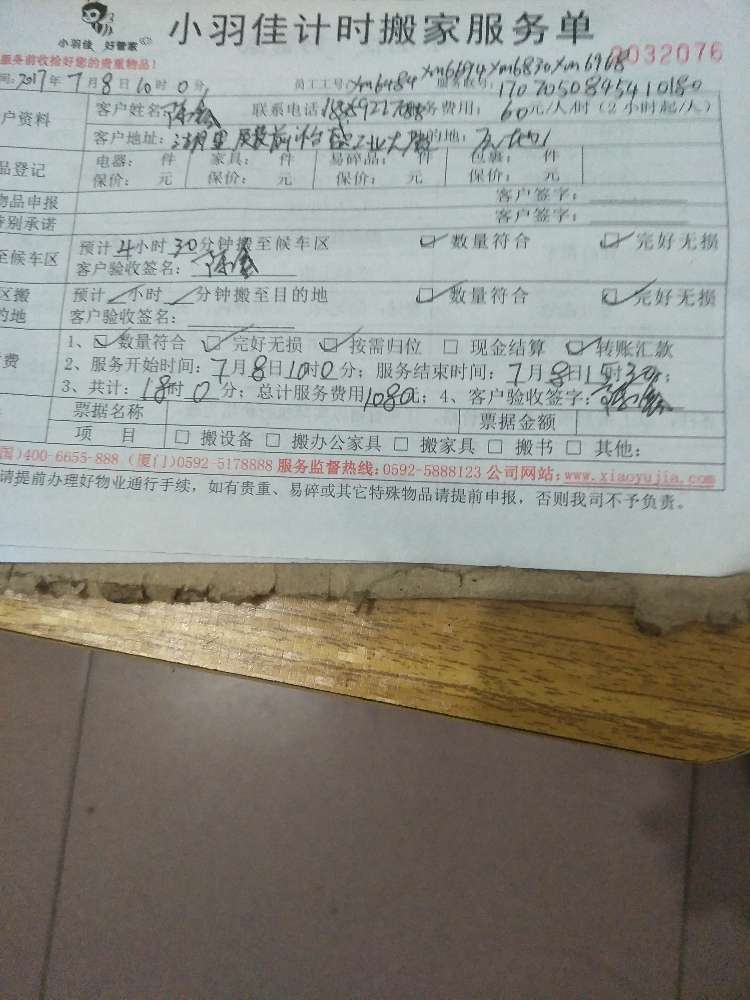 小羽佳 好管家
小羽佳计时搬家服务单
服务前收检好您的贵重物品!
0032076
间:2017年7月8日10时0分
员工工号:xm6484 xm6694 xm6830 xm6968
服务账号: 1707050845410180
户资料
客户姓名:
联系电话:
务费用: 60元/人/时(2小时起/人)
客户地址:
的地:
品登记
电器: 件 家具: 件 易碎品: 件 包裹: 件
保价: 元 保价: 元 保价: 元 保价: 元
物品申报
客户签字:
特别承诺
客户签字:
至候车区
预计4小时30分钟搬至候车区 数量符合 完好无损
客户验收签名:
区搬
的地
预计/小时/分钟搬至目的地 数量符合 完好无损
客户验收签名:
费
1、数量符合 完好无损 按需归位 现金结算 转账汇款
2、服务开始时间:7月8日10时0分;服务结束时间:7月8日1时30分;
3、共计:18时0分;总计服务费用1080元;4、客户验收签字:
票据名称 票据金额
项 目 搬设备 搬办公家具 搬家具 搬书 其他:
国)400-6655-888 (厦门)0592-5178888 服务监督热线:0592-5888123 公司网站:www.xiaoyujia.com
请提前办理好物业通行手续,如有贵重、易碎或其它特殊物品请提前申报,否则我司不予负责。